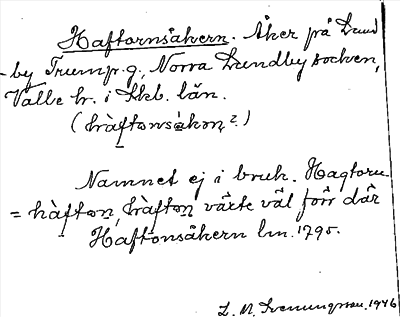 Haftornsåkern. Åker på Lund
-by Trump.g., Norra Lundby socken,
Valle hr. i Skb. län.
(hàftonsåkən?)
Namnet ej i bruk. Hagtorn
= hàfton, hàfton växte väl förr där
Haftonsåkern lm. 1795.
L. M. Svenungsson. 1946